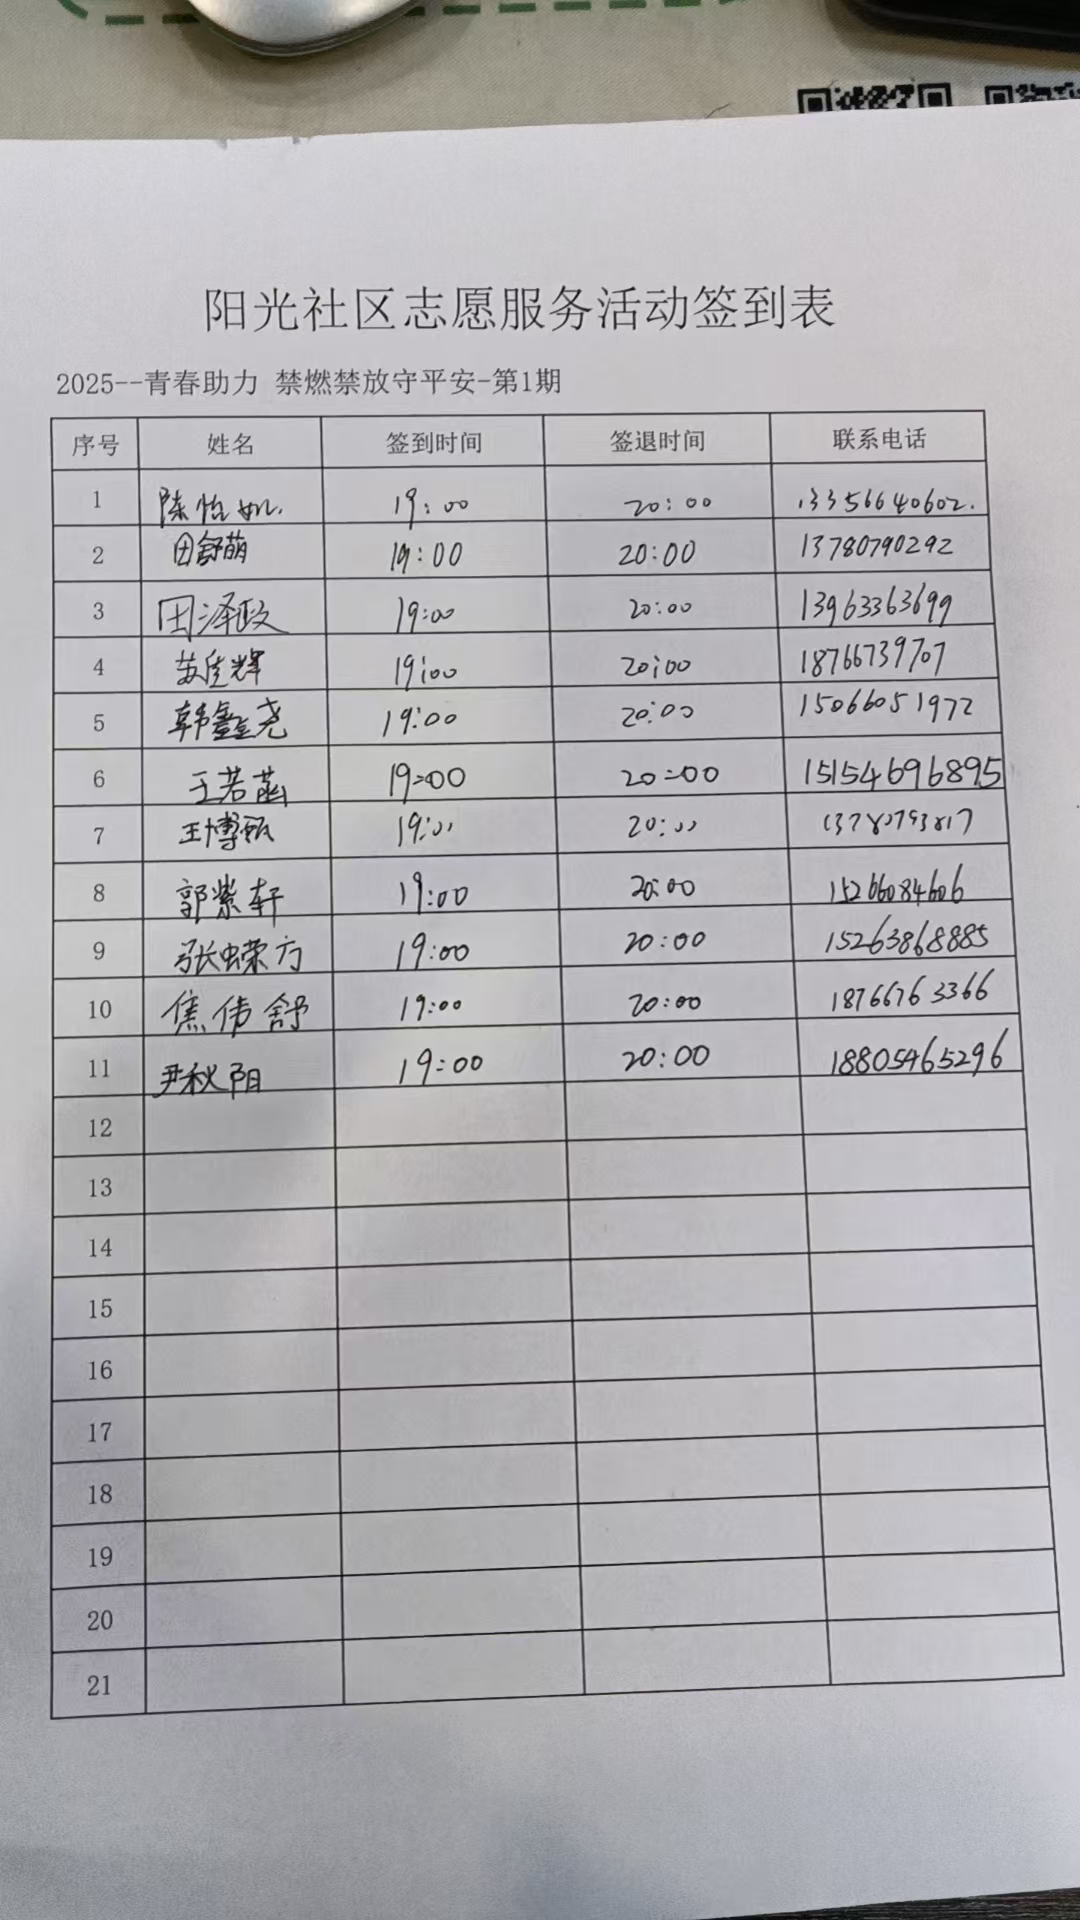 阳光社区志愿服务活动签到表
2025--青春助力 禁燃禁放守平安-第1期
序号 姓名 签到时间 签退时间 联系电话
1 陈怡如. 19:00 20:00 13356640602.
2 田舒萌 19:00 20:00 13780790292
3 田泽政 19:00 20:00 13963363699
4 苏佳辉 19:00 20:00 18766739707
5 韩鑫尧 19:00 20:00 15066051972
6 王若菡 19:00 20:00 15154696895
7 王博 19:00 20:00 13780793817
8 郭紫轩 19:00 20:00 15266084606
9 张蝾方 19:00 20:00 15263868885
10 焦伟舒 19:00 20:00 18766763366
11 尹秋阳 19:00 20:00 18805465296
12
13
14
15
16
17
18
19
20
21